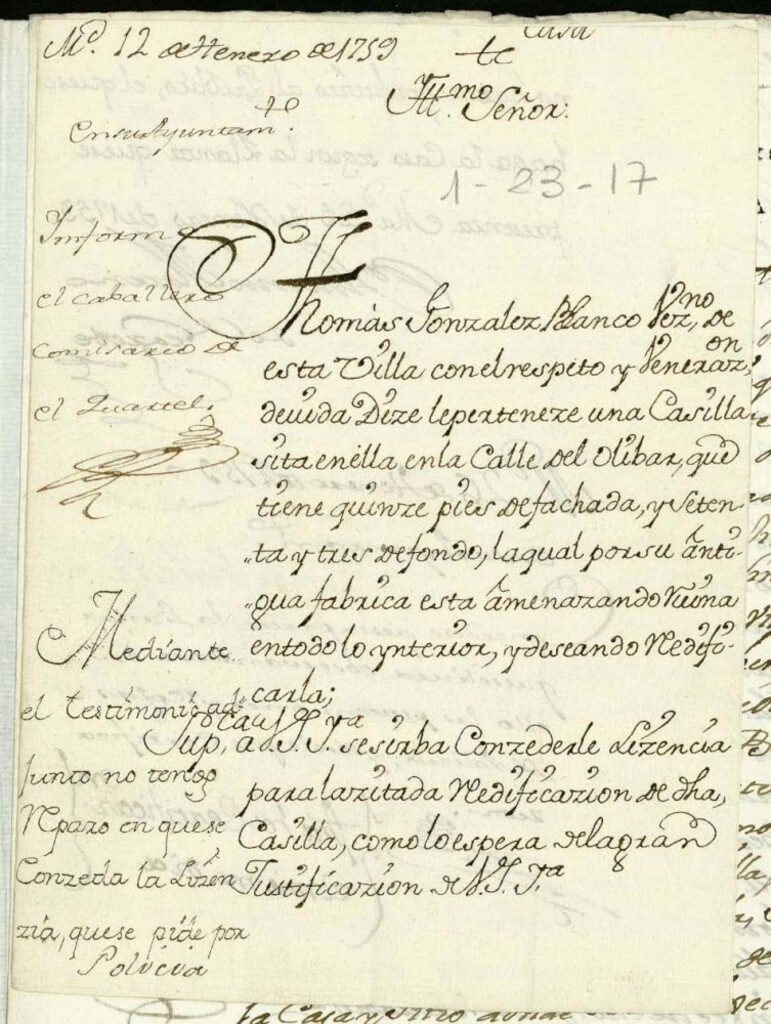 M.d 12 de Henero de 1759
Casa
Yll.mo Señor:
En su Ayuntam.to
1-23-17
Informe
el caballero
Comisario de
el Quartel.
Thomàs Gonzalez Blanco Vez,no de
esta Villa con el respeto y Venerazon
deuida Dize le perteneze una Casilla
sita en èlla en la Calle del Olibar, que
tiene quinze pies de fachada, y seten-
ta y tres de fondo, la qual por su ânti-
gua fabrica esta âmenazando Ruina
en todo lo ynterior, y deseando Redifi-
carla;
Sup,ca a V.S.Y.a se sirba Conzederle Lizencia
para la zitada Redificazion de dha,
Casilla, como lo espera de la gran
Justificazion de V.S.Y.a
Mediante
el testimonio ad-
junto no tengo
Reparo en que se
Conzeda la Lizen
zia, que se pide por
Polvcia
la Casa y sitio donde